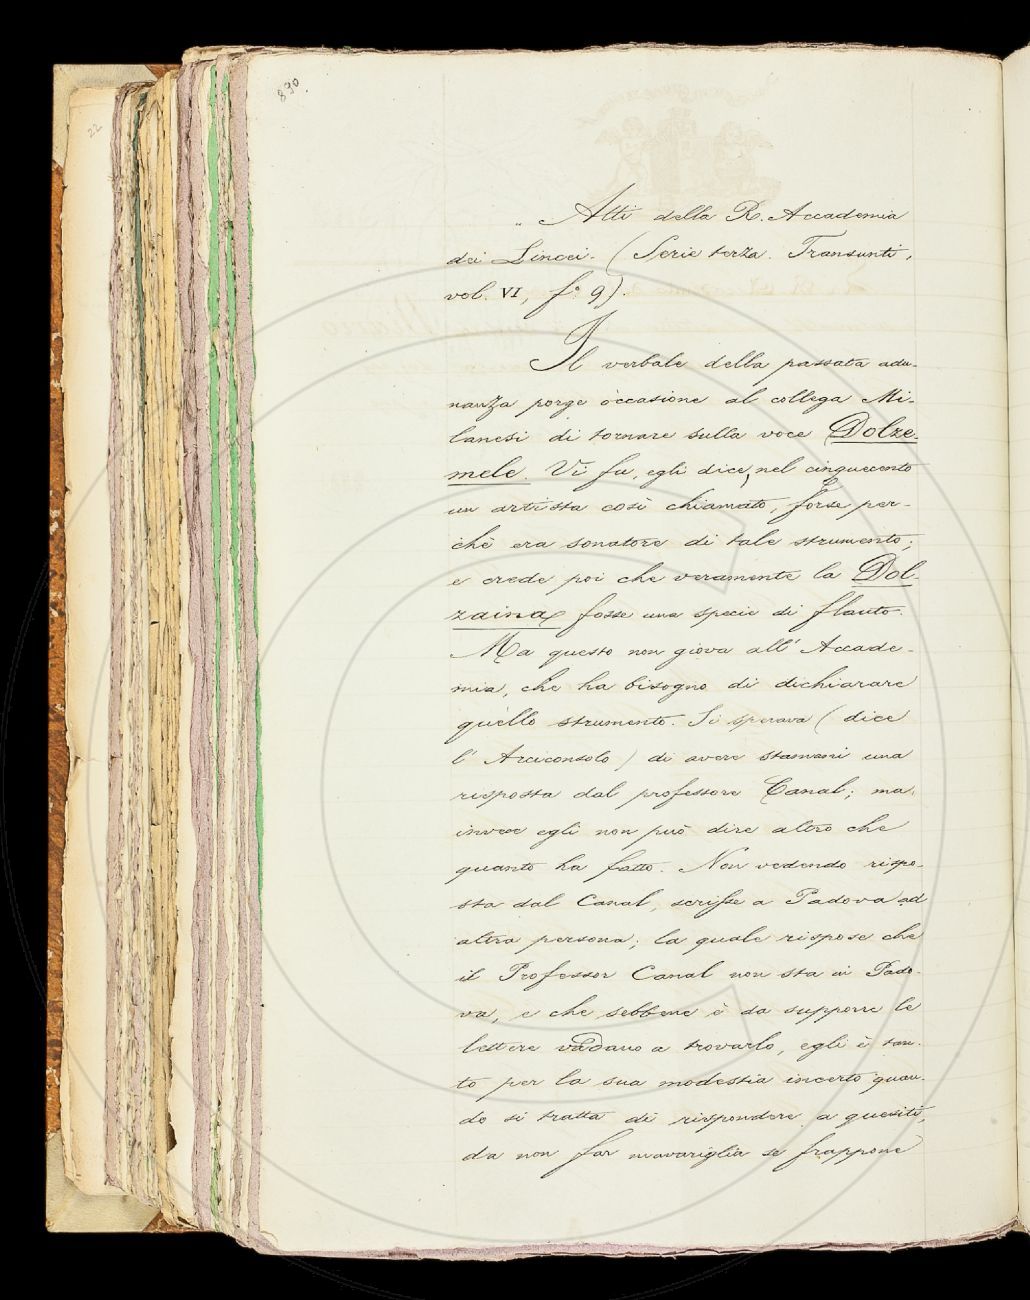 890.
22
Atti della R. Accademia
dei Lincei. (Serie terza. Transunti,
vol. VI, fº 9).
Il verbale della passata adu-
nanza porge occasione al collega Mi-
lanesi di tornare sulla voce Dolze-
mele. Vi fu, egli dice, nel cinquecento
un artista così chiamato, forse per-
chè era sonatore di tale strumento;
e crede poi che veramente la Dol-
zaina fosse una specie di flauto.
Ma questo non giova all' Accade-
mia, che ha bisogno di dichiarare
quello strumento. Si sperava (dice
l' Arciconsolo) di avere stamani una
risposta dal professore Canal; ma
invece egli non può dire altro che
quanto ha fatto. Non vedendo rispo-
sta dal Canal, scrisse a Padova ad
altra persona; la quale rispose che
il Professor Canal non sta in Pado-
va, e che sebbene è da supporre le
lettere vadano a trovarlo, egli è tan-
to per la sua modestia incerto quan-
do si tratta di rispondere a quesiti,
da non far maraviglia se frappone